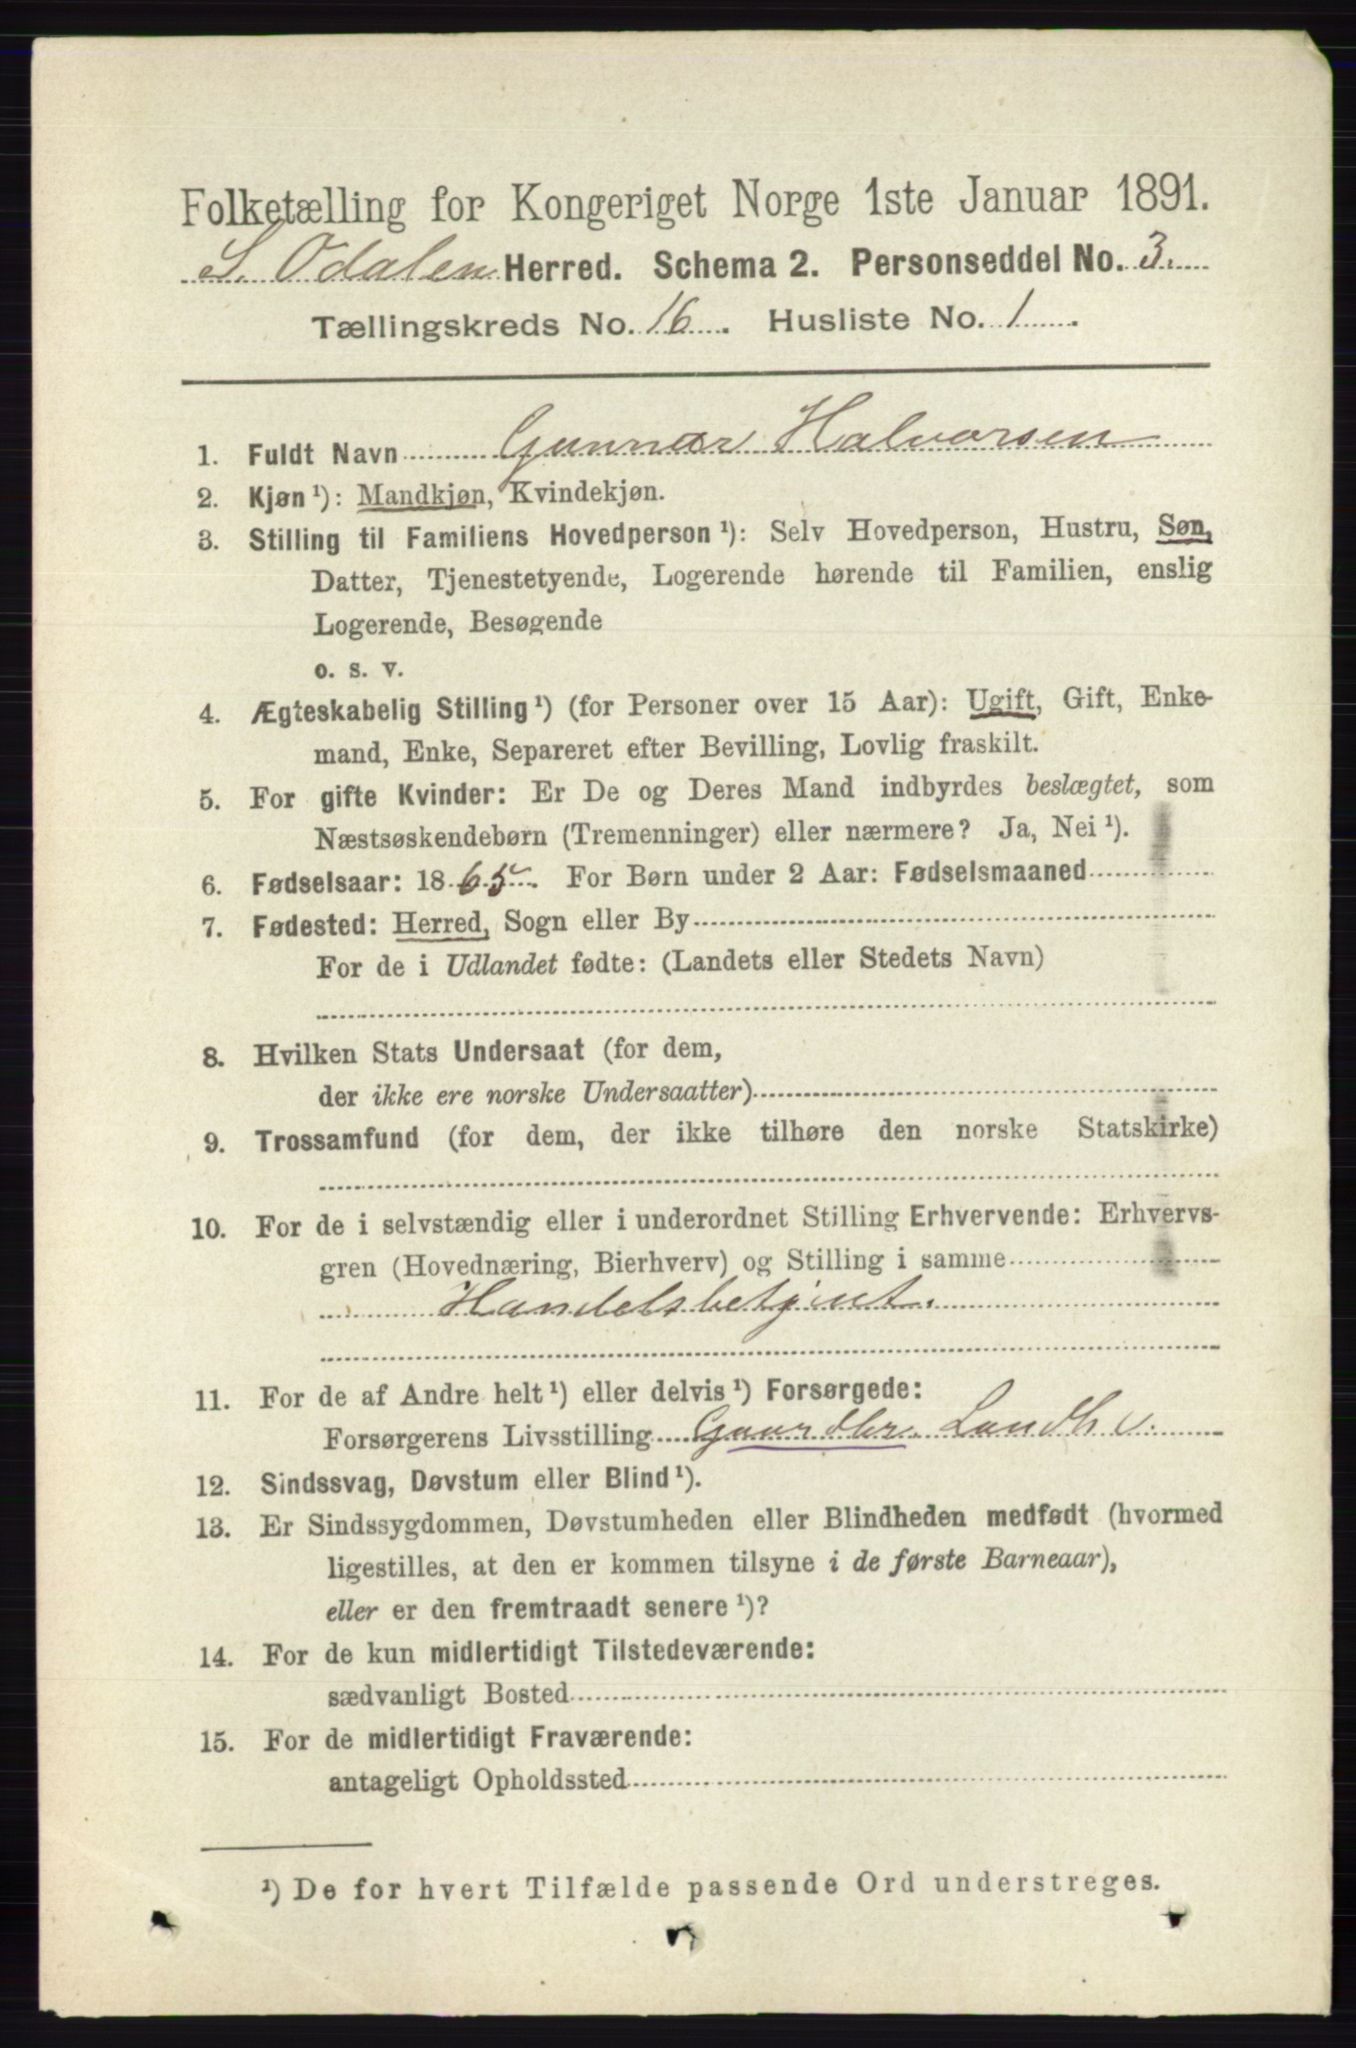 Folketælling for Kongeriget Norge 1ste Januar 1891.
S. Odalen Herred. Schema 2. Personseddel No. 3.
Tællingskreds No. 16. Husliste No. 1.
1. Fuldt Navn Gunnar Halvorsen
2. Kjøn¹): Mandkjøn, Kvindekjøn.
3. Stilling til Familiens Hovedperson¹): Selv Hovedperson, Hustru, Søn,
Datter, Tjenestetyende, Logerende hørende til Familien, enslig
Logerende, Besøgende
o. s. v.
4. Ægteskabelig Stilling¹) (for Personer over 15 Aar): Ugift, Gift, Enke-
mand, Enke, Separeret efter Bevilling, Lovlig fraskilt.
5. For gifte Kvinder: Er De og Deres Mand indbyrdes beslægtet, som
Næstsøskendebørn (Tremenninger) eller nærmere? Ja, Nei¹).
6. Fødselsaar: 1865. For Børn under 2 Aar: Fødselsmaaned
7. Fødested: Herred, Sogn eller By
For de i Udlandet fødte: (Landets eller Stedets Navn)
8. Hvilken Stats Undersaat (for dem,
der ikke ere norske Undersaatter)
9. Trossamfund (for dem, der ikke tilhøre den norske Statskirke)
10. For de i selvstændig eller i underordnet Stilling Erhvervende: Erhvervs-
gren (Hovednæring, Bierhverv) og Stilling i samme
Handelsbetjent.
11. For de af Andre helt¹) eller delvis¹) Forsørgede:
Forsørgerens Livsstilling Gaardbr. Landh.
12. Sindssvag, Døvstum eller Blind¹).
13. Er Sindssygdommen, Døvstumheden eller Blindheden medfødt (hvormed
ligestilles, at den er kommen tilsyne i de første Barneaar),
eller er den fremtraadt senere¹)?
14. For de kun midlertidigt Tilstedeværende:
sædvanligt Bosted
15. For de midlertidigt Fraværende:
antageligt Opholdssted
¹) De for hvert Tilfælde passende Ord understreges.